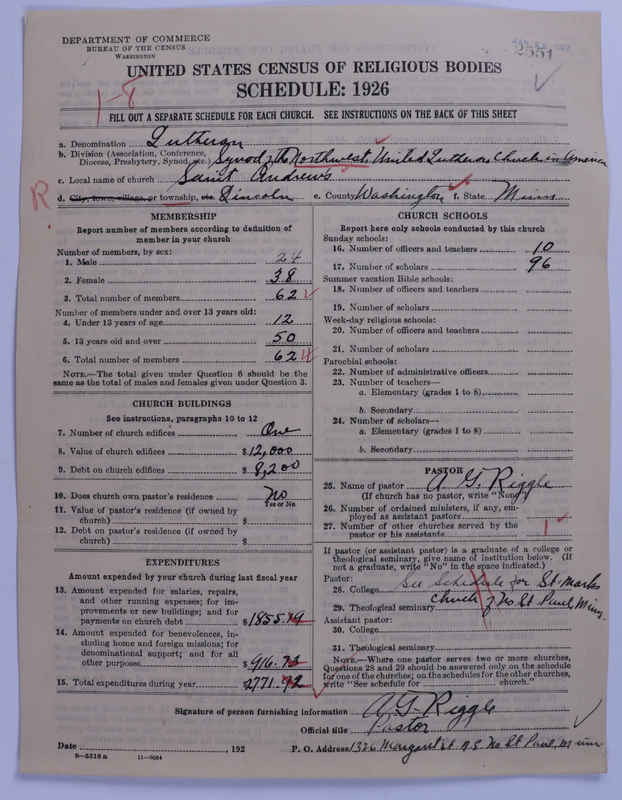 DEPARTMENT OF COMMERCE
BUREAU OF THE CENSUS
WASHINGTON
JAN 28 1927
2551
UNITED STATES CENSUS OF RELIGIOUS BODIES
SCHEDULE: 1926
1-8
FILL OUT A SEPARATE SCHEDULE FOR EACH CHURCH. SEE INSTRUCTIONS ON THE BACK OF THIS SHEET
a. Denomination Lutheran
b. Division (Association, Conference, Diocese, Presbytery, Synod, etc.) Synod of the Northwest, United Lutheran Church in America
c. Local name of church Saint Andrews
R
d. City, town, village, or township, etc. Lincoln e. County Washington f. State Minn
MEMBERSHIP
Report number of members according to definition of
member in your church
Number of members, by sex:
1. Male 24
2. Female 38
3. Total number of members 62
Number of members under and over 13 years old:
4. Under 13 years of age 12
5. 13 years old and over 50
6. Total number of members 62
NOTE.—The total given under Question 6 should be the
same as the total of males and females given under Question 3.
CHURCH BUILDINGS
See instructions, paragraphs 10 to 12
7. Number of church edifices One
8. Value of church edifices $12,000
9. Debt on church edifices $8,200
10. Does church own pastor's residence No
Yes or No
11. Value of pastor's residence (if owned by
church) $
12. Debt on pastor's residence (if owned by
church) $
EXPENDITURES
Amount expended by your church during last fiscal year
13. Amount expended for salaries, repairs,
and other running expenses; for im-
provements or new buildings; and for
payments on church debt $1855.19
14. Amount expended for benevolences, in-
cluding home and foreign missions; for
denominational support; and for all
other purposes $916.73
15. Total expenditures during year $2771.92
CHURCH SCHOOLS
Report here only schools conducted by this church
Sunday schools:
16. Number of officers and teachers 10
17. Number of scholars 96
Summer vacation Bible schools:
18. Number of officers and teachers
19. Number of scholars
Week-day religious schools:
20. Number of officers and teachers
21. Number of scholars
Parochial schools:
22. Number of administrative officers
23. Number of teachers—
a. Elementary (grades 1 to 8)
b. Secondary
24. Number of scholars—
a. Elementary (grades 1 to 8)
b. Secondary
PASTOR
25. Name of pastor A G. Riggle
(If church has no pastor, write "None")
26. Number of ordained ministers, if any, em-
ployed as assistant pastors
27. Number of other churches served by the
pastor or his assistants 1
If pastor (or assistant pastor) is a graduate of a college or
theological seminary, give name of institution below. (If
not a graduate, write "No" in the space indicated.)
Pastor:
28. College See Schedule for St. Marks
29. Theological seminary Church of No. St Paul Minn.
Assistant pastor:
30. College
31. Theological seminary
NOTE.—Where one pastor serves two or more churches,
Questions 28 and 29 should be answered only on the schedule
for one of the churches; on the schedules for the other churches,
write "See schedule for church."
Signature of person furnishing information A G. Riggle
Official title Pastor
Date , 192 P. O. Address 1326 Margaret St No. St Paul, Minn
8—5518a 11—9054